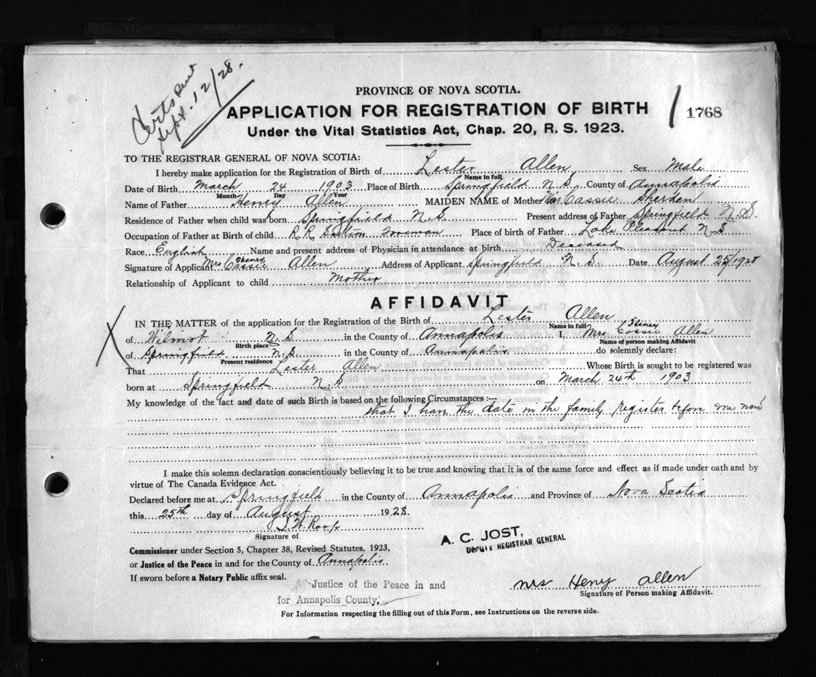 Sept. 12/28.
PROVINCE OF NOVA SCOTIA.
APPLICATION FOR REGISTRATION OF BIRTH
1768
Under the Vital Statistics Act, Chap. 20, R. S. 1923.
TO THE REGISTRAR GENERAL OF NOVA SCOTIA:
I hereby make application for the Registration of Birth of Lester Allen Sex Male
Name in full
Date of Birth March 24 1903 Place of Birth Springfield N.S. County of Annapolis
Month Day Year
Name of Father Henery Allen MAIDEN NAME of Mother Cassie
Residence of Father when child was born Springfield N.S. Present address of Father Springfield N.S.
Occupation of Father at Birth of child R R Section Foreman Place of birth of Father Lake Pleasant N S
Race English Name and present address of Physician in attendance at birth Deceased
Signature of Applicant Mrs Cassie Heney Allen Address of Applicant Springfield N S Date August 25/1928
Relationship of Applicant to child Mother
AFFIDAVIT
IN THE MATTER of the application for the Registration of the Birth of Lester Allen
Name in full
of Wilmot N.S in the County of Annapolis I, Mrs Cassie Heney Allen
Birth place Name of person making Affidavit
of Springfield N.S in the County of Annapolis do solemnly declare:
Present residence
That Lester Allen Whose Birth is sought to be registered was
born at Springfield N.S on March 24th 1903
My knowledge of the fact and date of such Birth is based on the following Circumstances :—
that I have the date in the family register before me now
I make this solemn declaration conscientiously believing it to be true and knowing that it is of the same force and effect as if made under oath and by
virtue of The Canada Evidence Act.
Declared before me at Springfield in the County of Annapolis and Province of Nova Scotia
this 25th day of August 1928.
J W Roop
Signature of
A. C. JOST,
DEPUTY REGISTRAR GENERAL
Commissioner under Section 5, Chapter 38, Revised Statutes, 1923,
or Justice of the Peace in and for the County of Annapolis
If sworn before a Notary Public affix seal.
Justice of the Peace in and
for Annapolis County.
Mrs Heney Allen
Signature of Person making Affidavit.
For Information respecting the filling out of this Form, see Instructions on the reverse side.